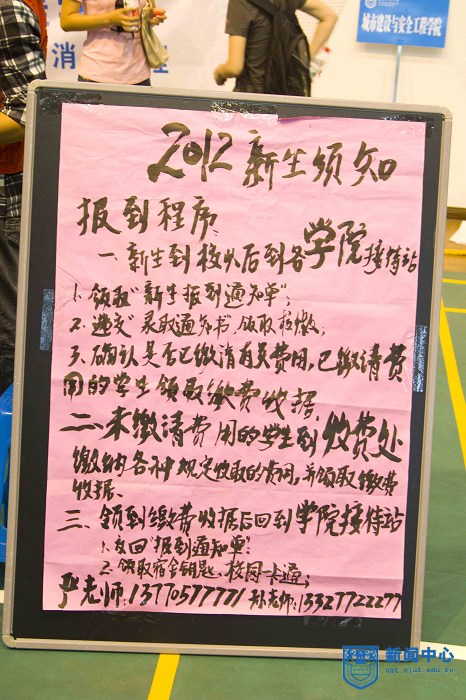 城市建设与安全工程学院
消
2012新生须知
报到程序:
一、新生到校以后到各学院接待站
1.领取"新生报到通知单";
2.递交"录取通知书",领取校徽;
3.确认是否已缴清有关费用,已缴清费
用的学生领取缴费收据.
二、未缴清费用的学生到收费处
缴纳各种规定收取的费用,并领取缴费
收据、
三、领到缴费收据后回到学院接待站
1.交回"报到通知单";
2.领取宿舍钥匙、校园一卡通;
严老师:13770577771 孙老师:13327722277
新闻中心